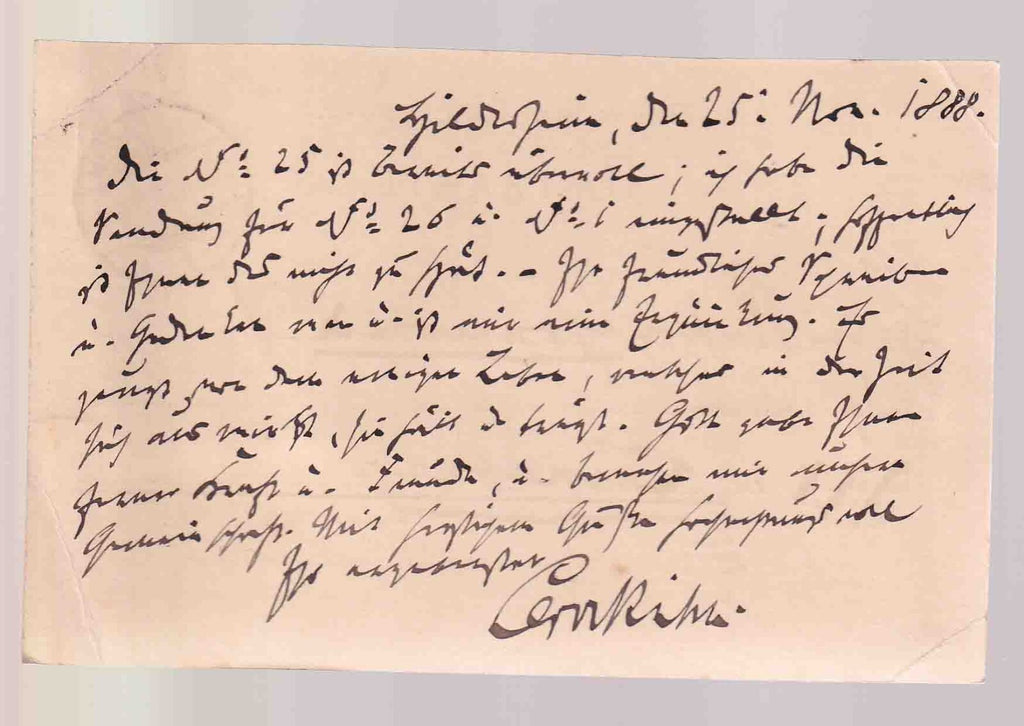 Hildesheim, den 25. Nov. 1888.
Die No. 25 ist bereits übervoll; ich habe die
Sendung für No. 26 u. No. 1 eingestellt; hoffentlich
ist Ihnen das nicht zu spät. – Ihr freundliches Schreiben
u. Gedenken von u. ist mir eine Erquickung. Es
zeugt von dem ewigen Leben, welches in der Zeit
sich als, sie hält u. trägt. Gott gebe Ihnen
ferner Kraft u. Freude, u. bewahre mir unsere
Gemeinschaft. Mit herzlichem Gruße hochachtungsvoll
Ihr ergebenster